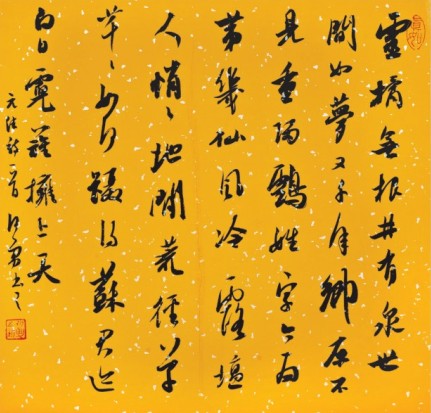 靈橘無根井有泉世
間如夢又千年鄉園不
見重歸鶴姓字今為
第幾仙風冷露壇
人悄々地閒荒徑草
綿々如何躡得蘇君迹
白日霓旌擁上天
元結詩一首 書之